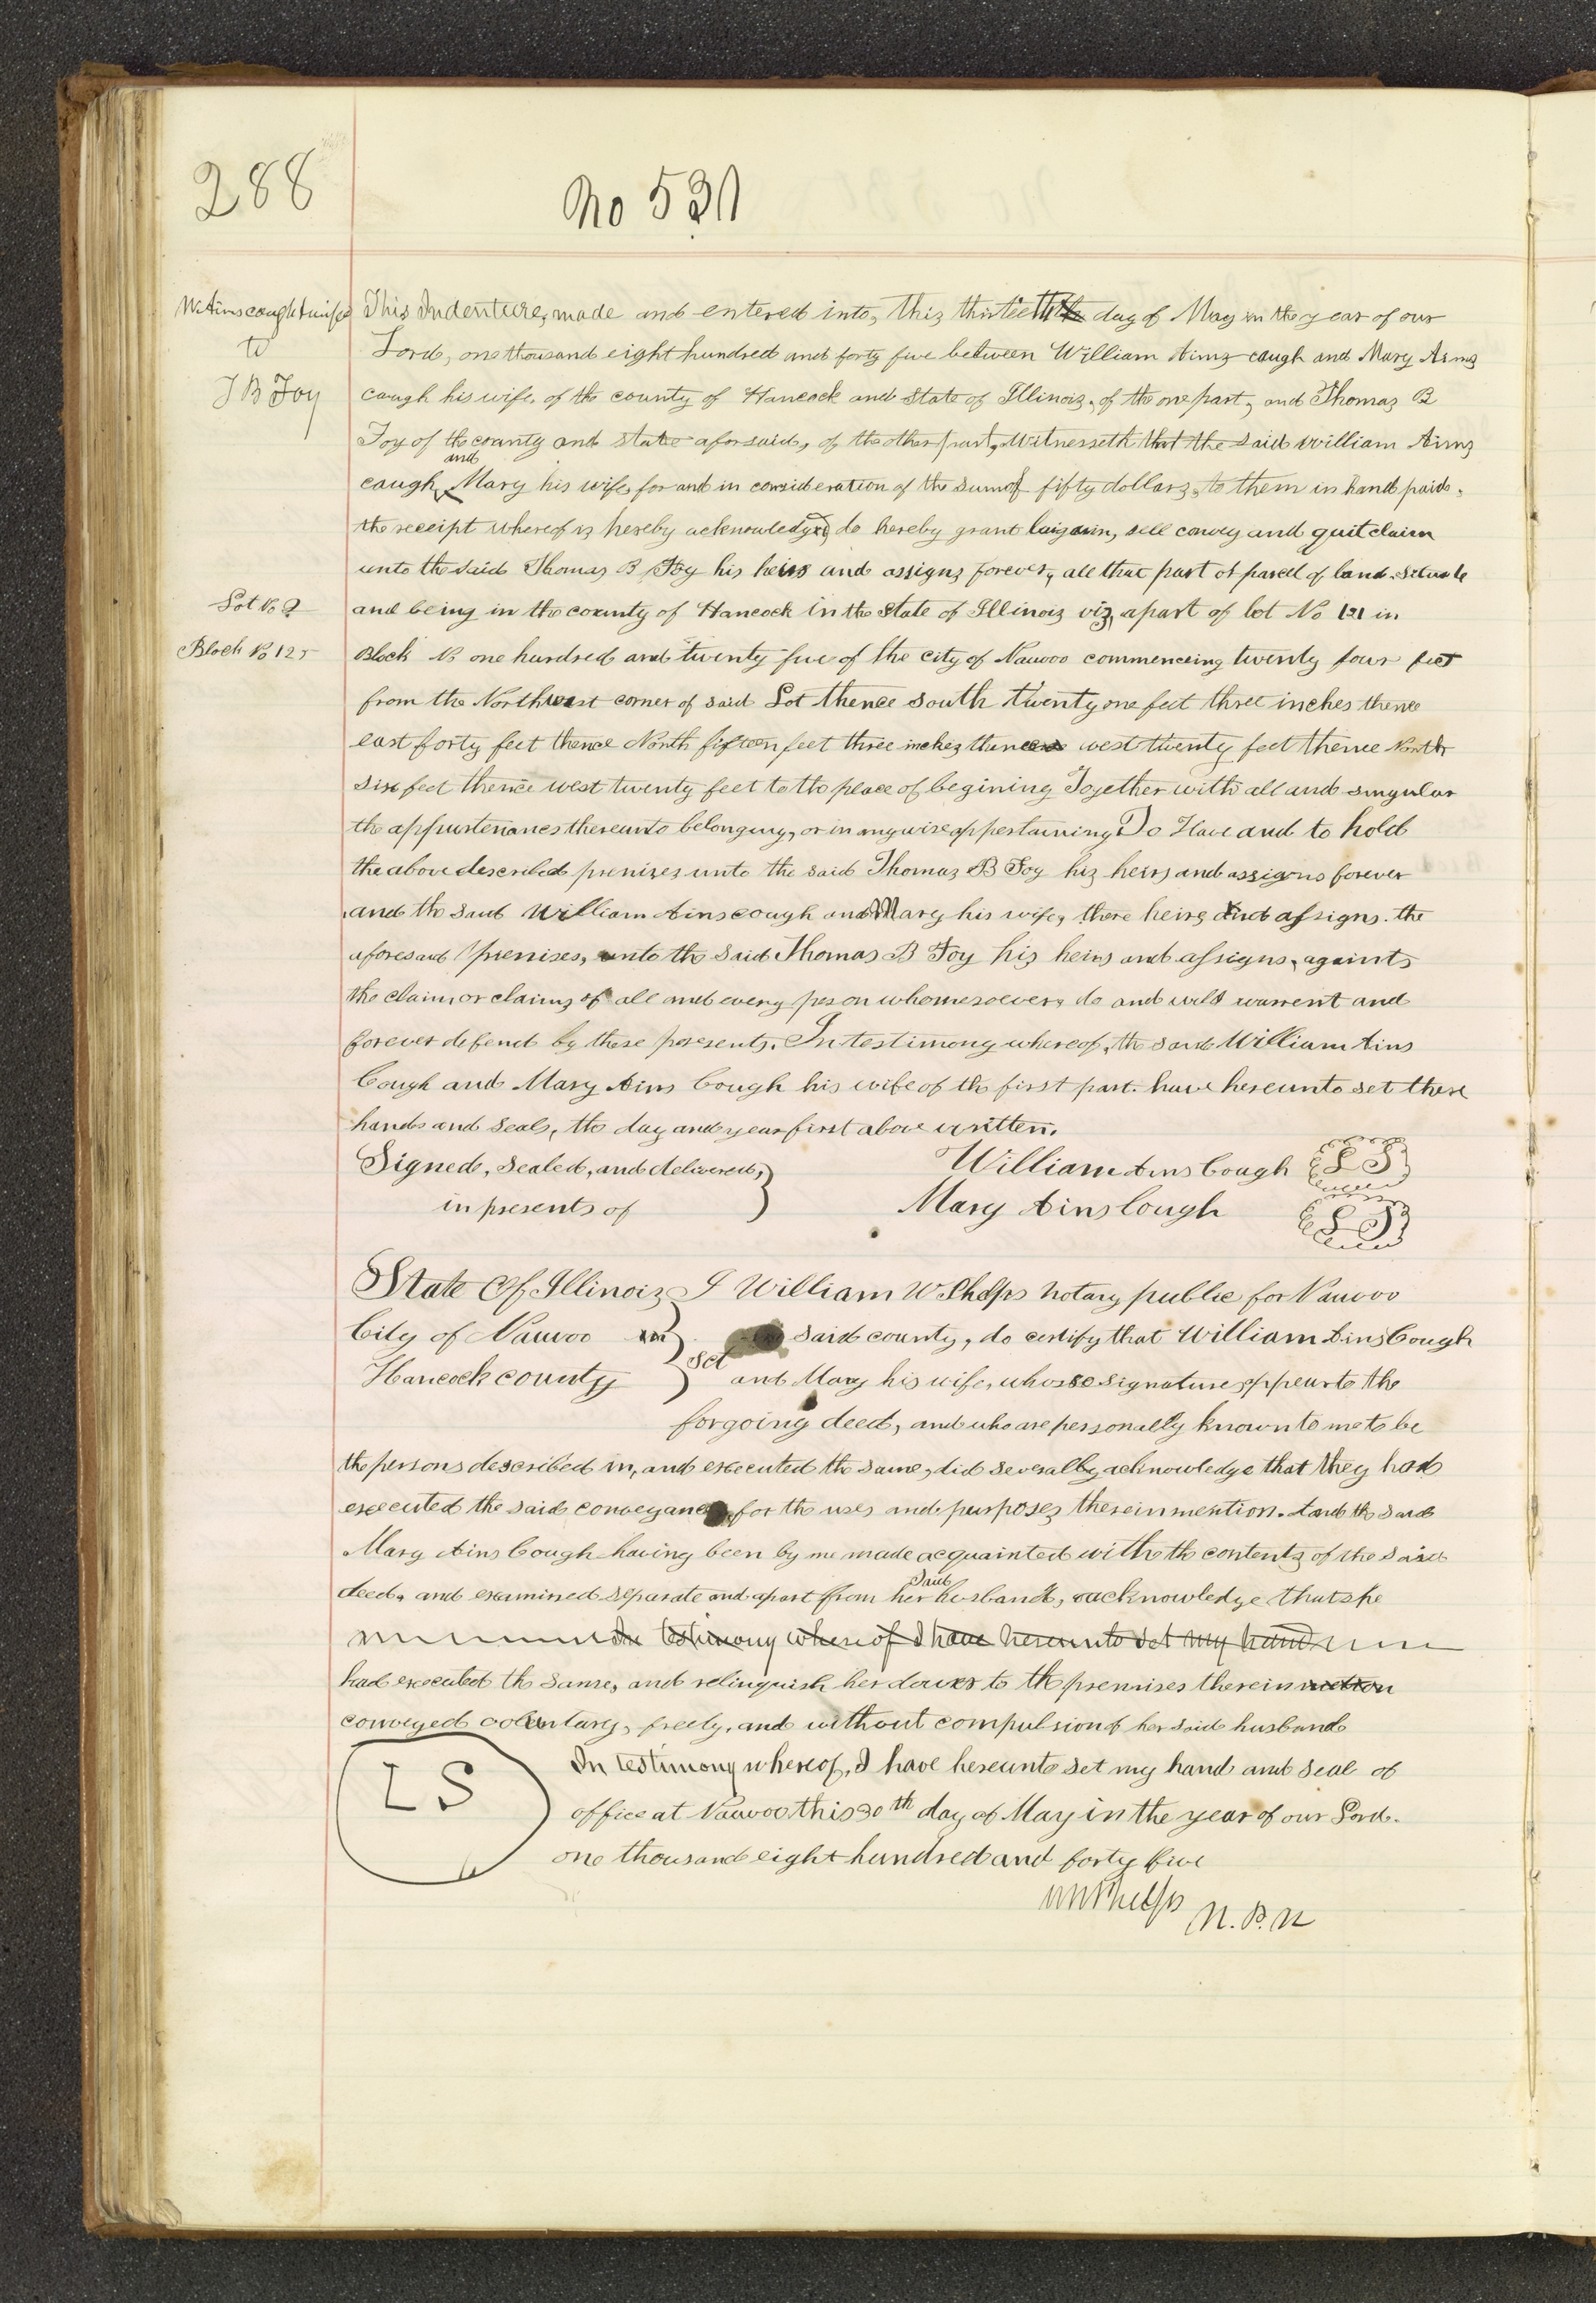 288
No 530
Wm Ainscough & wife
to
T B Foy
This Indenture, made and entered into, this thirtieth day of May in the year of our
Lord, one thousand eight hundred and forty five between William Ains caugh and Mary Ains
caugh his wife, of the county of Hancock and State of Illinois, of the one part, and Thomas B
Foy of the county and state aforsaid, of the other part, Witnesseth that the said William Ains
caugh, and Mary his wife, for and in consideration of the sum of fifty dollars, to them in hand paid,
the receipt whereof is hereby acknowledged, do hereby grant baigain, sell convey and quit claim
unto the said Thomas B Foy his heirs and assigns forever, all that part of parcell of land. Situate
Lot No 2
and being in the county of Hancock in the State of Illinois viz, a part of lot No 121 in
Block No 125
Block No one hundred and twenty five of the city of Nauvoo commenceing twenty four feet
from the Northwest corner of said Lot thence south twenty one feet three inches thence
east forty feet thence North fifteen feet three inches thence west twenty feet thence North
six feet thence west twenty feet to the place of begining Together with all and singular
the appurtenances thereunto belonging, or in any wise appertaining To Have and to hold
the above described premises unto the said Thomas B Foy his heirs and assigns forever
and the said William Ainscough and Mary his wife, there heirs and assigns. the
aforesaid premises, unto the said Thomas B Foy his heirs and assigns, againts
the claim, or claims of all and every person whomesoever, do and will warrent and
forever defend by these presents. In testimony whereof, the said William Ains
Cough and Mary Ains Cough his wife of the first part. have hereunto set there
hands and seals, the day and year first above written.
Signed, Sealed, and delivered, William Ains Cough L S
in presents of Mary Ains Cough L S
State Of Illinois I William W Phelps Notary public for Nauvoo
City of Nauvoo said county, do certify that William Ains Cough
Hancock county Sct and Mary his wife, whose signatures appear to the
forgoing deed, and who are personally known to me to be
the persons described in, and executed the same, did severally acknowledge that they had
executed the said conveyance for the uses and purposes therein mention. And the said
Mary Ains Cough having been by me made acquainted with the contents of the said
deed, and examined separate and apart from her said husband, acknowledge that she
In testimony whereof I have hereunto set my hand
had executed the same, and relinquish her dower to the premises therein
conveyed voluntary, freely, and without compulsion of her said husband
L S
In testimony whereof, I have hereunto set my hand and seal of
office at Nauvoo this 30th day of May in the year of our Lord.
one thousand eight hundred and forty five
W W Phelps N. P. N